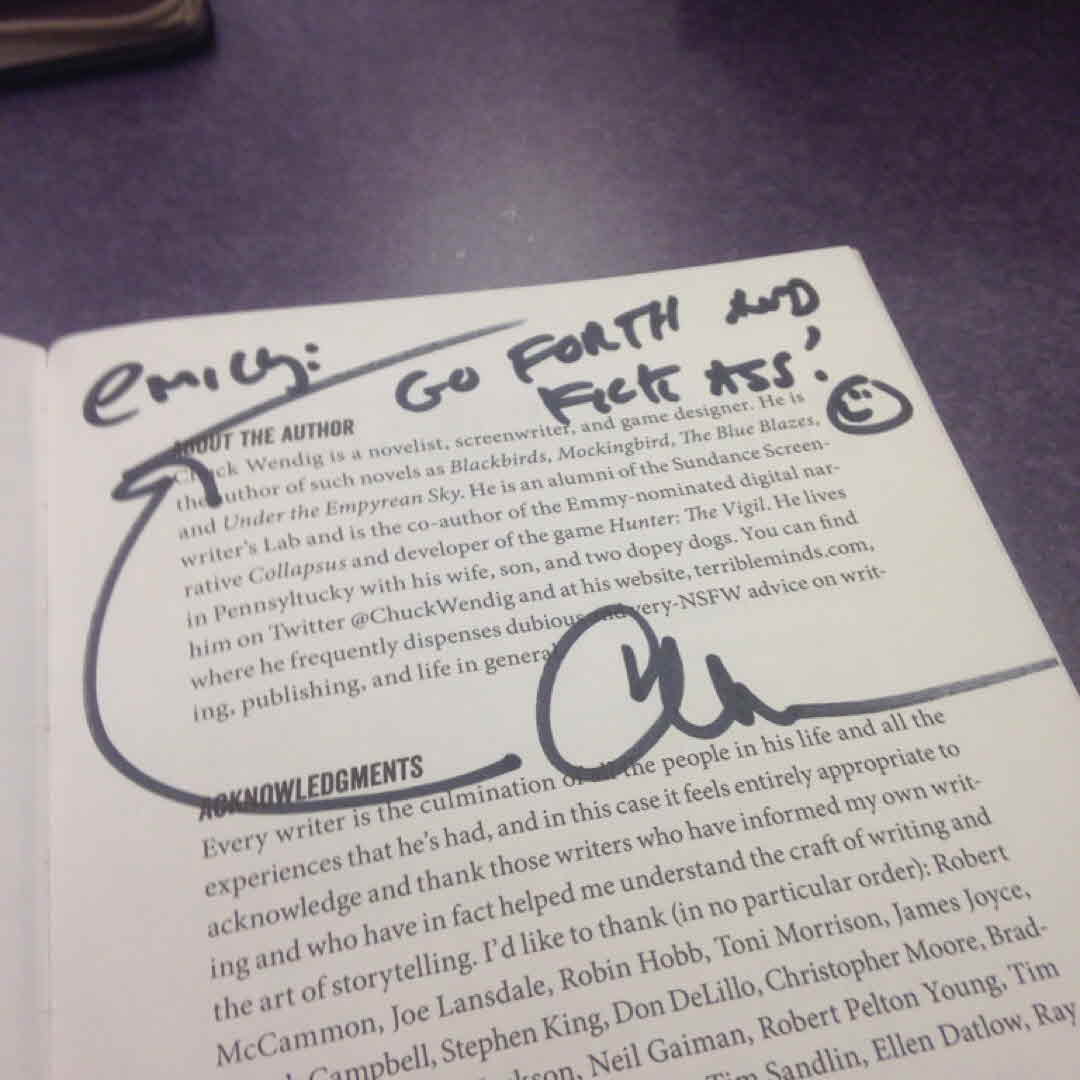 Emily:
GO FORTH AND
KICK ASS!
ABOUT THE AUTHOR
Chuck Wendig is a novelist, screenwriter, and game designer. He is
the author of such novels as Blackbirds, Mockingbird, The Blue Blazes,
and Under the Empyrean Sky. He is an alumni of the Sundance Screen-
writer's Lab and is the co-author of the Emmy-nominated digital nar-
rative Collapsus and developer of the game Hunter: The Vigil. He lives
in Pennsyltucky with his wife, son, and two dopey dogs. You can find
him on Twitter @ChuckWendig and at his website, terribleminds.com,
where he frequently dispenses dubious and very-NSFW advice on writ-
ing, publishing, and life in general
ACKNOWLEDGMENTS
Every writer is the culmination of all the people in his life and all the
experiences that he's had, and in this case it feels entirely appropriate to
acknowledge and thank those writers who have informed my own writ-
ing and who have in fact helped me understand the craft of writing and
the art of storytelling. I'd like to thank (in no particular order): Robert
McCammon, Joe Lansdale, Robin Hobb, Toni Morrison, James Joyce,
Campbell, Stephen King, Don DeLillo, Christopher Moore, Brad-
Neil Gaiman, Robert Pelton Young, Tim
Sandlin, Ellen Datlow, Ray